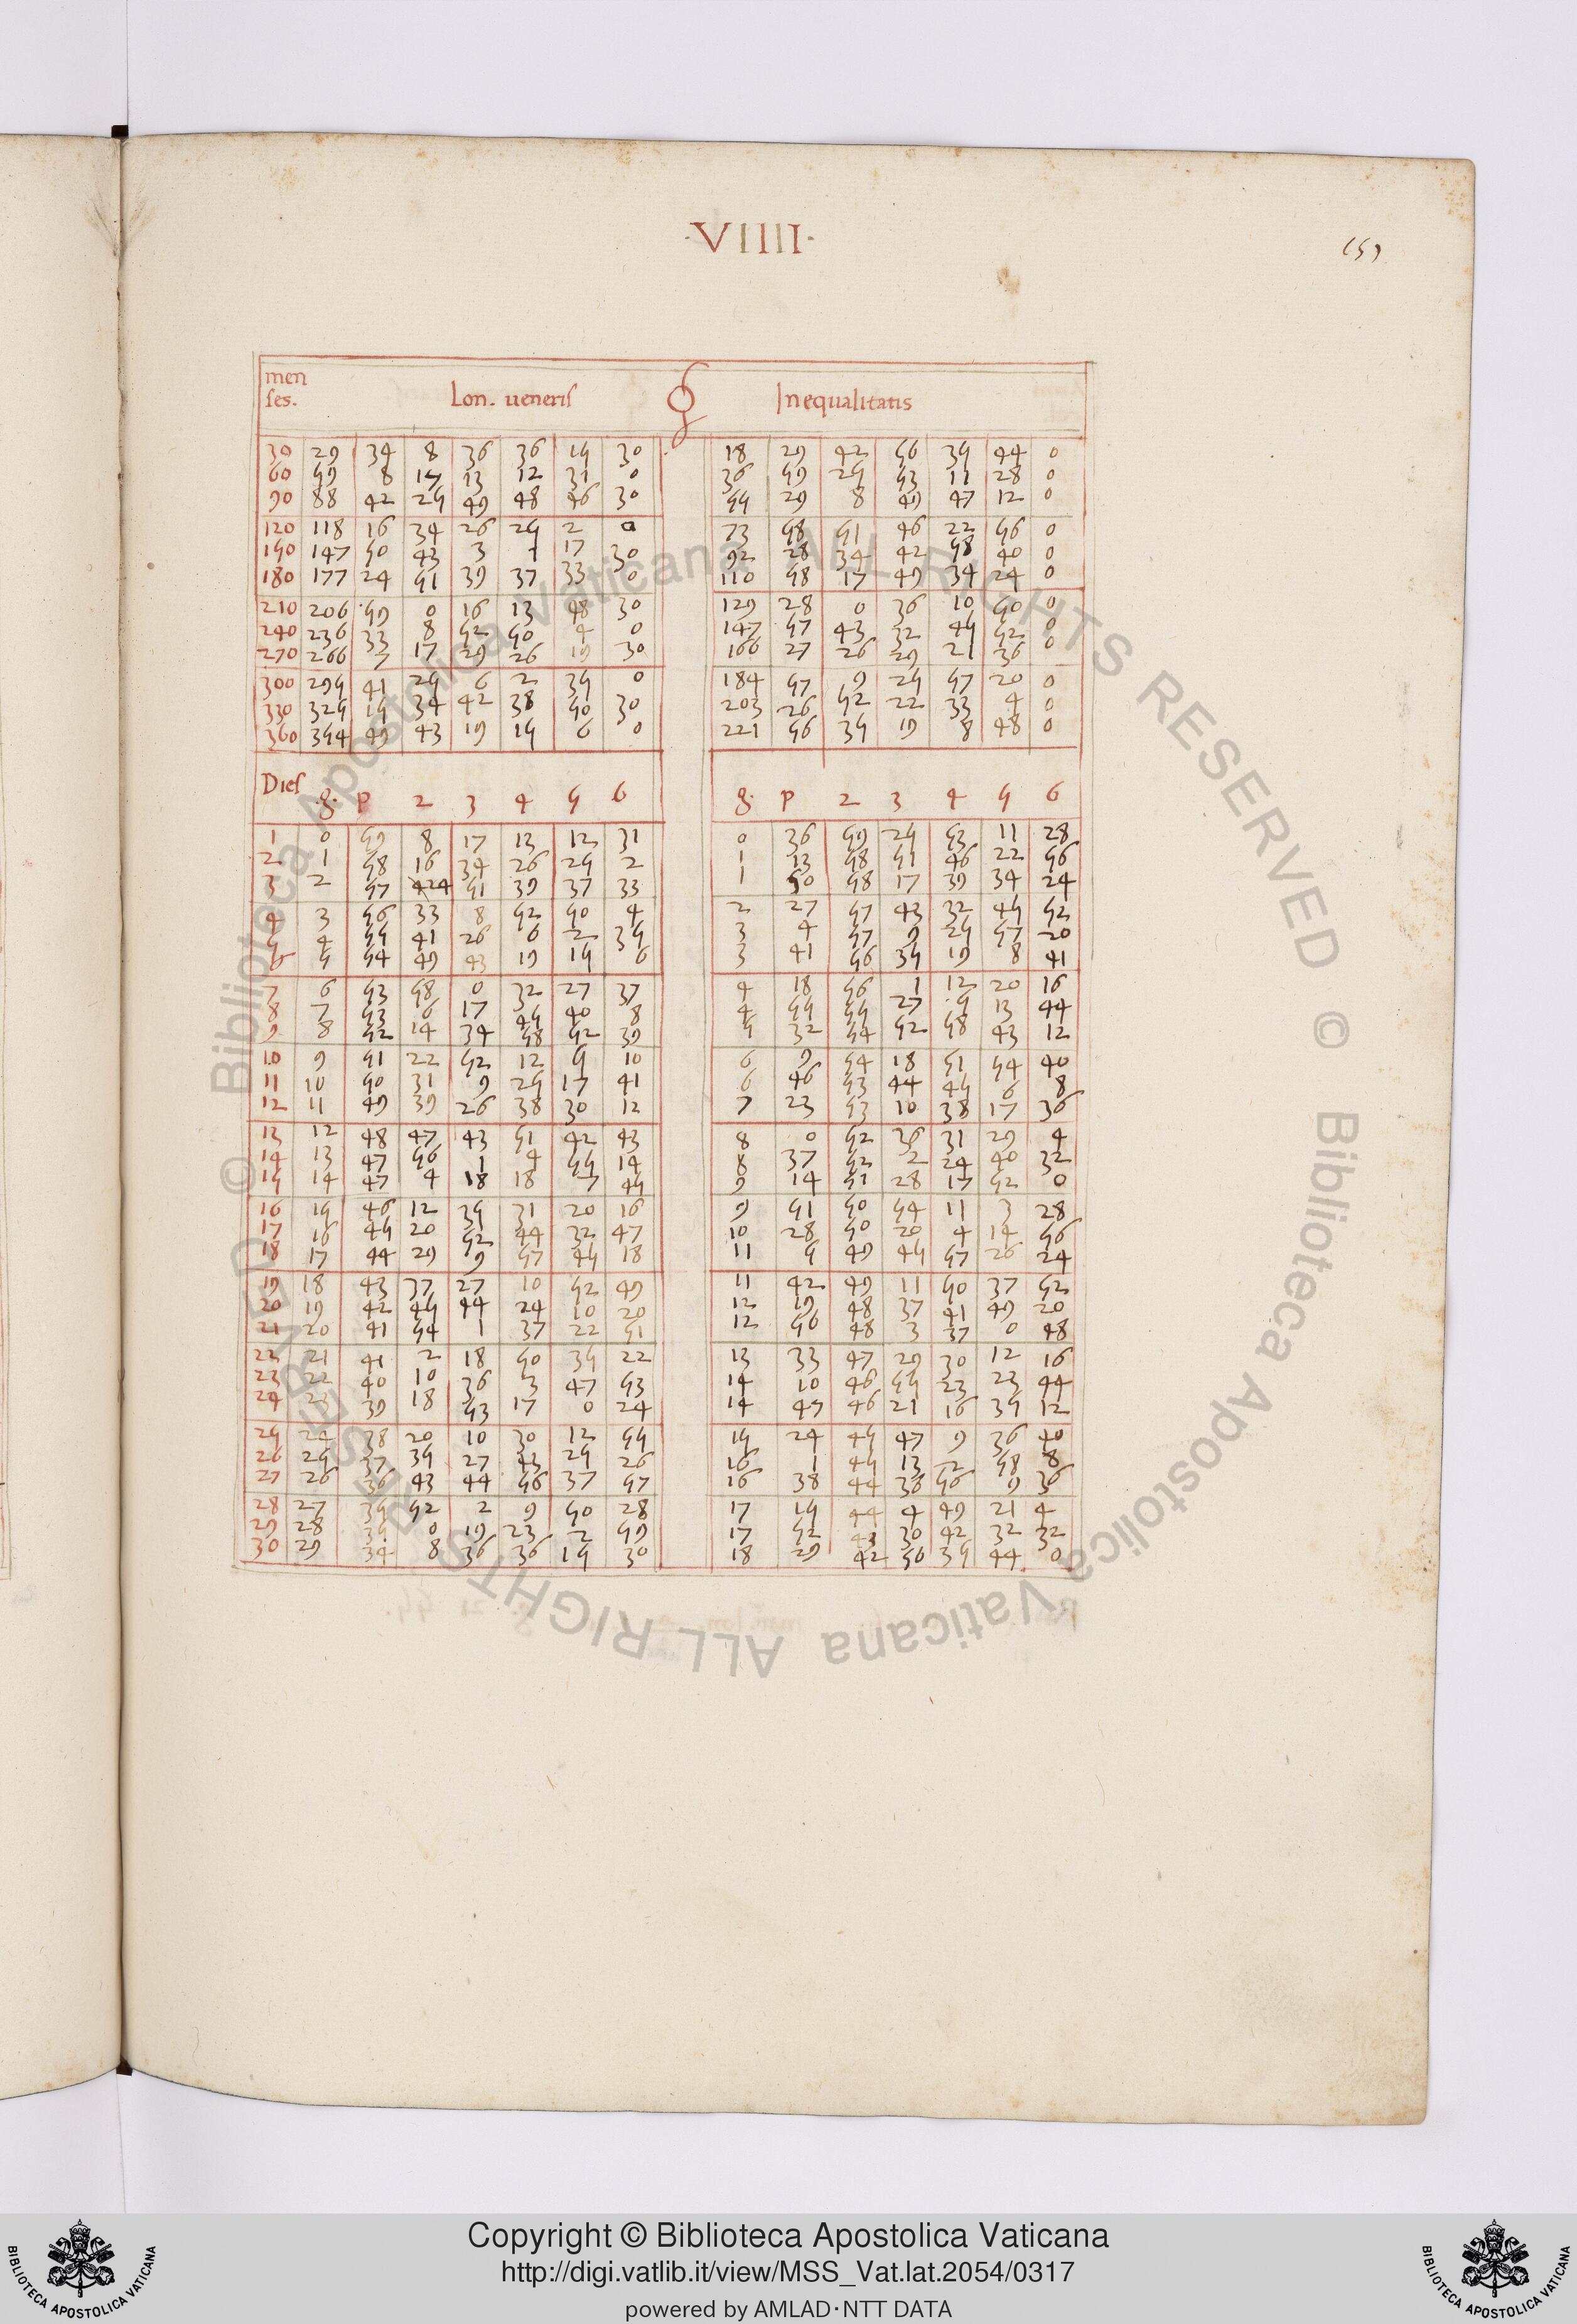 VIIII
159
menses. Lon. veneris ♀ Inequalitatis
30 29 34 8 36 36 15 30 18 29 42 56 35 44 0
60 59 8 17 13 12 31 0 36 59 25 53 11 28 0
90 88 42 25 49 48 46 30 55 29 8 49 47 12 0
120 118 16 34 26 25 2 0 73 58 51 46 22 56 0
150 147 50 43 3 1 17 30 92 28 34 42 58 40 0
180 177 24 51 39 37 33 0 110 58 17 49 34 24 0
210 206 59 0 16 13 48 30 129 28 0 36 10 50 0
240 236 33 8 52 50 4 0 147 57 43 32 45 52 0
270 266 7 17 29 26 19 30 166 27 26 29 21 36 0
300 295 41 25 6 2 35 0 184 57 9 25 57 20 0
330 325 15 34 42 38 50 30 203 26 52 22 33 4 0
360 354 49 43 19 15 6 0 221 56 35 19 8 48 0
Dies g. p 2 3 4 5 6 g. p 2 3 4 5 6
1 0 59 8 17 13 12 31 0 36 59 25 53 11 28
2 1 58 16 34 26 25 2 1 13 58 51 46 22 56
3 2 57 24 51 39 37 33 1 50 58 17 39 34 24
4 3 56 33 8 52 50 4 2 27 57 43 32 45 52
5 4 55 41 26 6 2 35 3 4 57 9 25 57 20
6 5 54 49 43 19 15 6 3 41 56 35 19 8 41
7 6 53 58 0 32 27 37 4 18 56 1 12 20 16
8 7 53 6 17 45 40 8 4 55 55 27 5 13 44
9 8 52 14 34 58 52 39 5 32 54 52 58 43 12
10 9 51 22 52 12 5 10 6 9 54 18 51 54 40
11 10 50 31 9 25 17 41 6 46 53 44 45 6 8
12 11 49 39 26 38 30 12 7 23 53 10 38 17 36
13 12 48 47 43 51 42 43 8 0 52 36 31 29 4
14 13 47 56 1 4 55 14 8 37 52 2 24 40 32
15 14 47 4 18 18 7 45 9 14 51 28 17 52 0
16 15 46 12 35 31 20 16 9 51 50 54 11 3 28
17 16 45 20 52 44 32 47 10 28 50 20 4 14 56
18 17 44 29 9 57 45 18 11 5 49 45 57 26 24
19 18 43 37 27 10 52 49 11 42 49 11 50 37 52
20 19 42 45 44 24 10 20 12 19 48 37 41 49 20
21 20 41 54 1 37 22 51 12 56 48 3 37 0 48
22 21 41 2 18 50 35 22 13 33 47 29 30 12 16
23 22 40 10 36 3 47 53 14 10 46 55 23 23 44
24 23 39 18 53 17 0 24 14 47 46 21 16 35 12
25 24 38 20 10 30 12 55 15 24 45 47 9 36 40
26 25 37 35 27 43 25 26 16 1 45 13 2 58 8
27 26 36 43 44 56 37 57 16 38 44 36 56 9 36
28 27 35 52 2 9 50 28 17 15 44 4 49 21 4
29 28 35 0 19 23 2 59 17 52 43 30 42 32 32
30 29 34 8 36 36 15 30 18 29 42 56 35 44 0
© Biblioteca Apostolica Vaticana ALL RIGHTS RESERVED © Biblioteca Apostolica Vaticana ALL RIGHTS RESERVED
Copyright © Biblioteca Apostolica Vaticana
http://digi.vatlib.it/view/MSS_Vat.lat.2054/0317
powered by AMLAD·NTT DATA
BIBLIOTECA APOSTOLICA VATICANA
BIBLIOTECA APOSTOLICA VATICANA